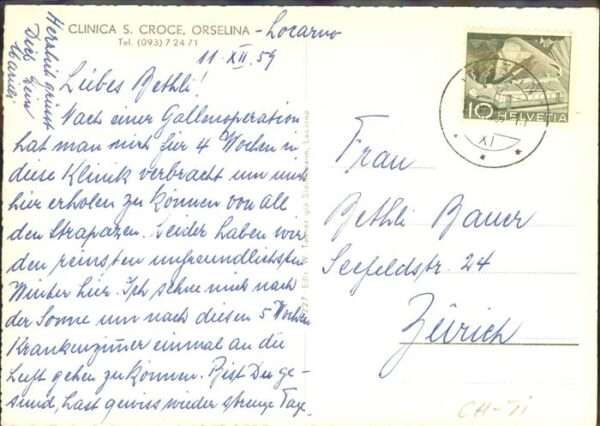 CLINICA S. CROCE, ORSELINA - Locarno
Tel. (093) 7 24 71
11. XII. 59
Liebes Bethli!
Nach einer Gallenoperation
hat man mich für 4 Wochen in
diese Klinik verbracht um mich
hier erholen zu können von all
den Strapazen. Leider haben wir
den reinsten unfreundlichsten
Winter hier. Ich sehne mich nach
der Sonne um nach diesen 5 Wochen
Krankenzimmer einmal an die
Luft gehen zu können. Bist Du ge-
sund, hast gewiss wieder strenge Tage.
Herzlich grüsst
Dich Dein
HELVETIA
10
XI
Frau
Bethli Bauer
Seefeldstr. 24
Zürich
CH-TI